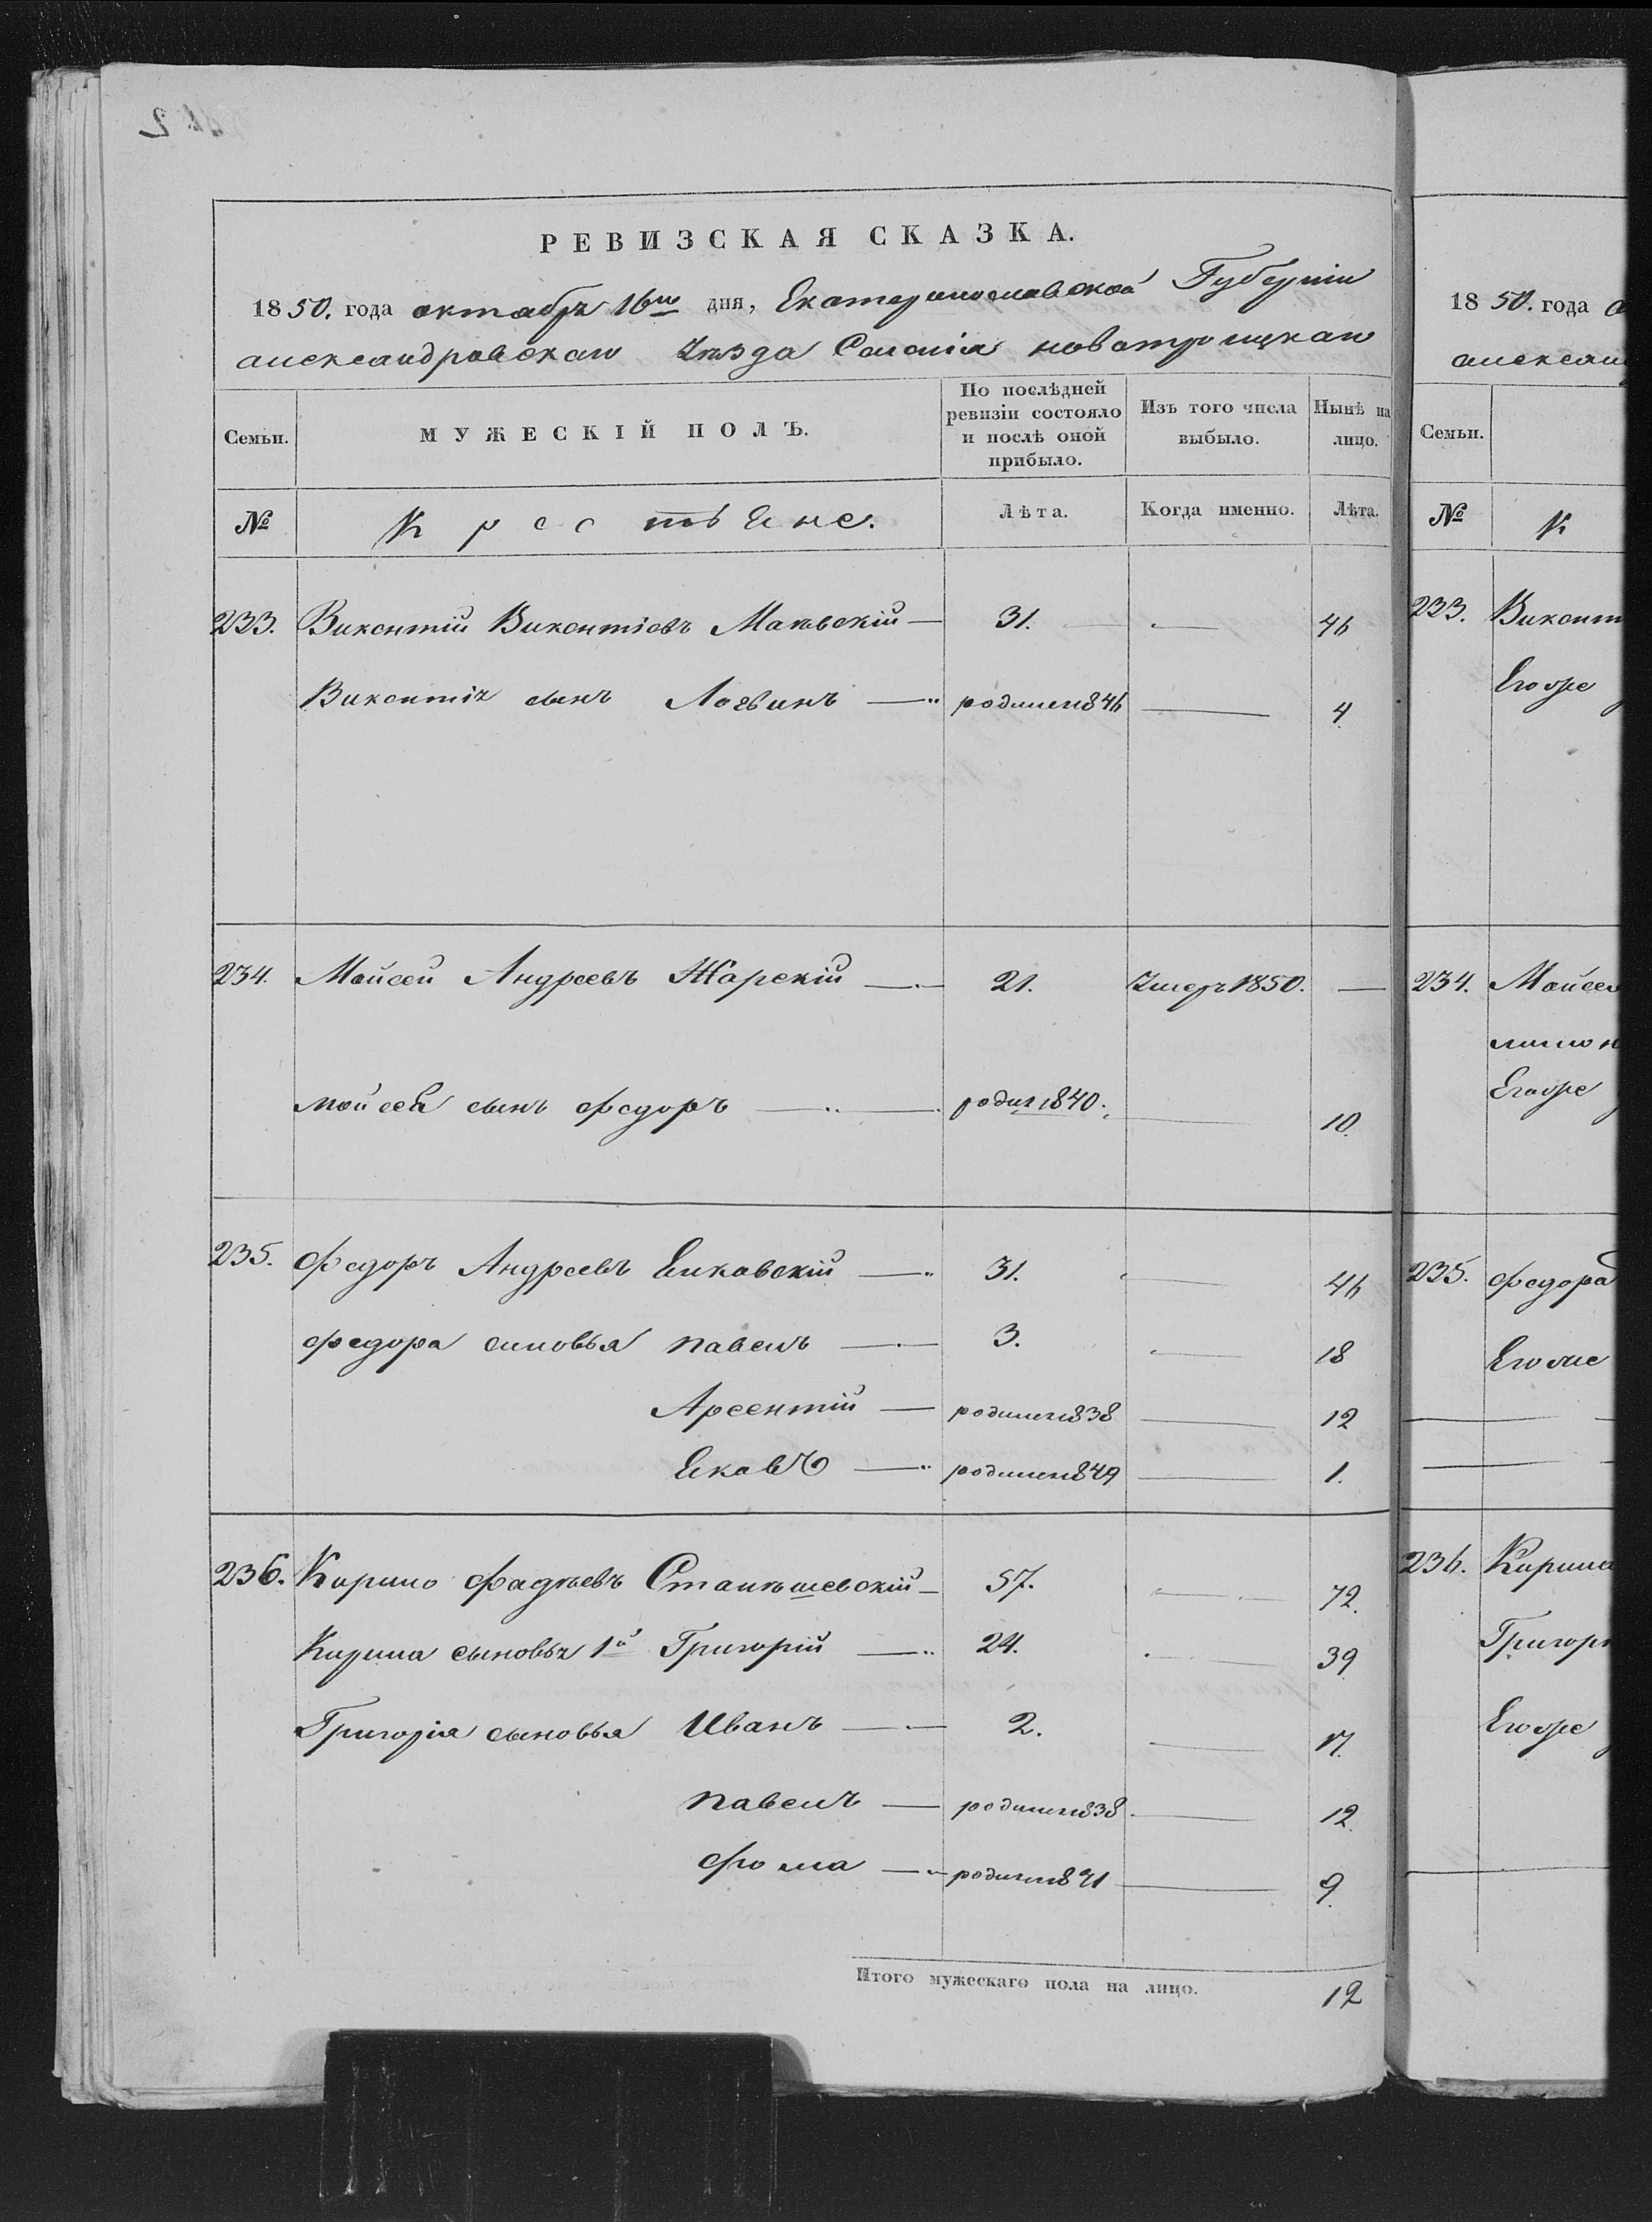 РЕВИЗСКАЯ СКАЗКА.
1850. года октабря 16го дня, Екатеринославской Губерніи
александровскаго Уѣзда Селенія новотроицкаго
Семьи.
МУЖЕСКІЙ ПОЛЪ.
По послѣдней ревизіи состояло и послѣ оной прибыло.
Изъ того числа выбыло.
Нынѣ на лицо.
№ Крестьяне. Лѣта. Когда именно. Лѣта.
233. Викентій Викентіевъ 31. — 46
Викентія сынъ Логвинъ — родился 1846 — 4
234. Мойсей Андреевъ Жарскій — 21. Умеръ 1850. —
мойсея сынъ федоръ — родил 1840. — 10.
235. федоръ Андреевъ — 31. — 46
федора сыновья павелъ — 3. — 18
Арсентій — родился 1838 — 12
Яковъ — родился 1849 — 1.
236. Кирило фадѣевъ Станишевскій — 57. — 72.
Кирила сыновья 1й Григорій — 24. — 39
Григорія сыновья Иванъ — 2. — 17.
павелъ — родился 1838 — 12.
фома — родился 1841 — 9.
Итого мужескаго пола на лицо. 12
1850. года
Семьи.
№ К
233.
234.
235. федора
236. Кирила